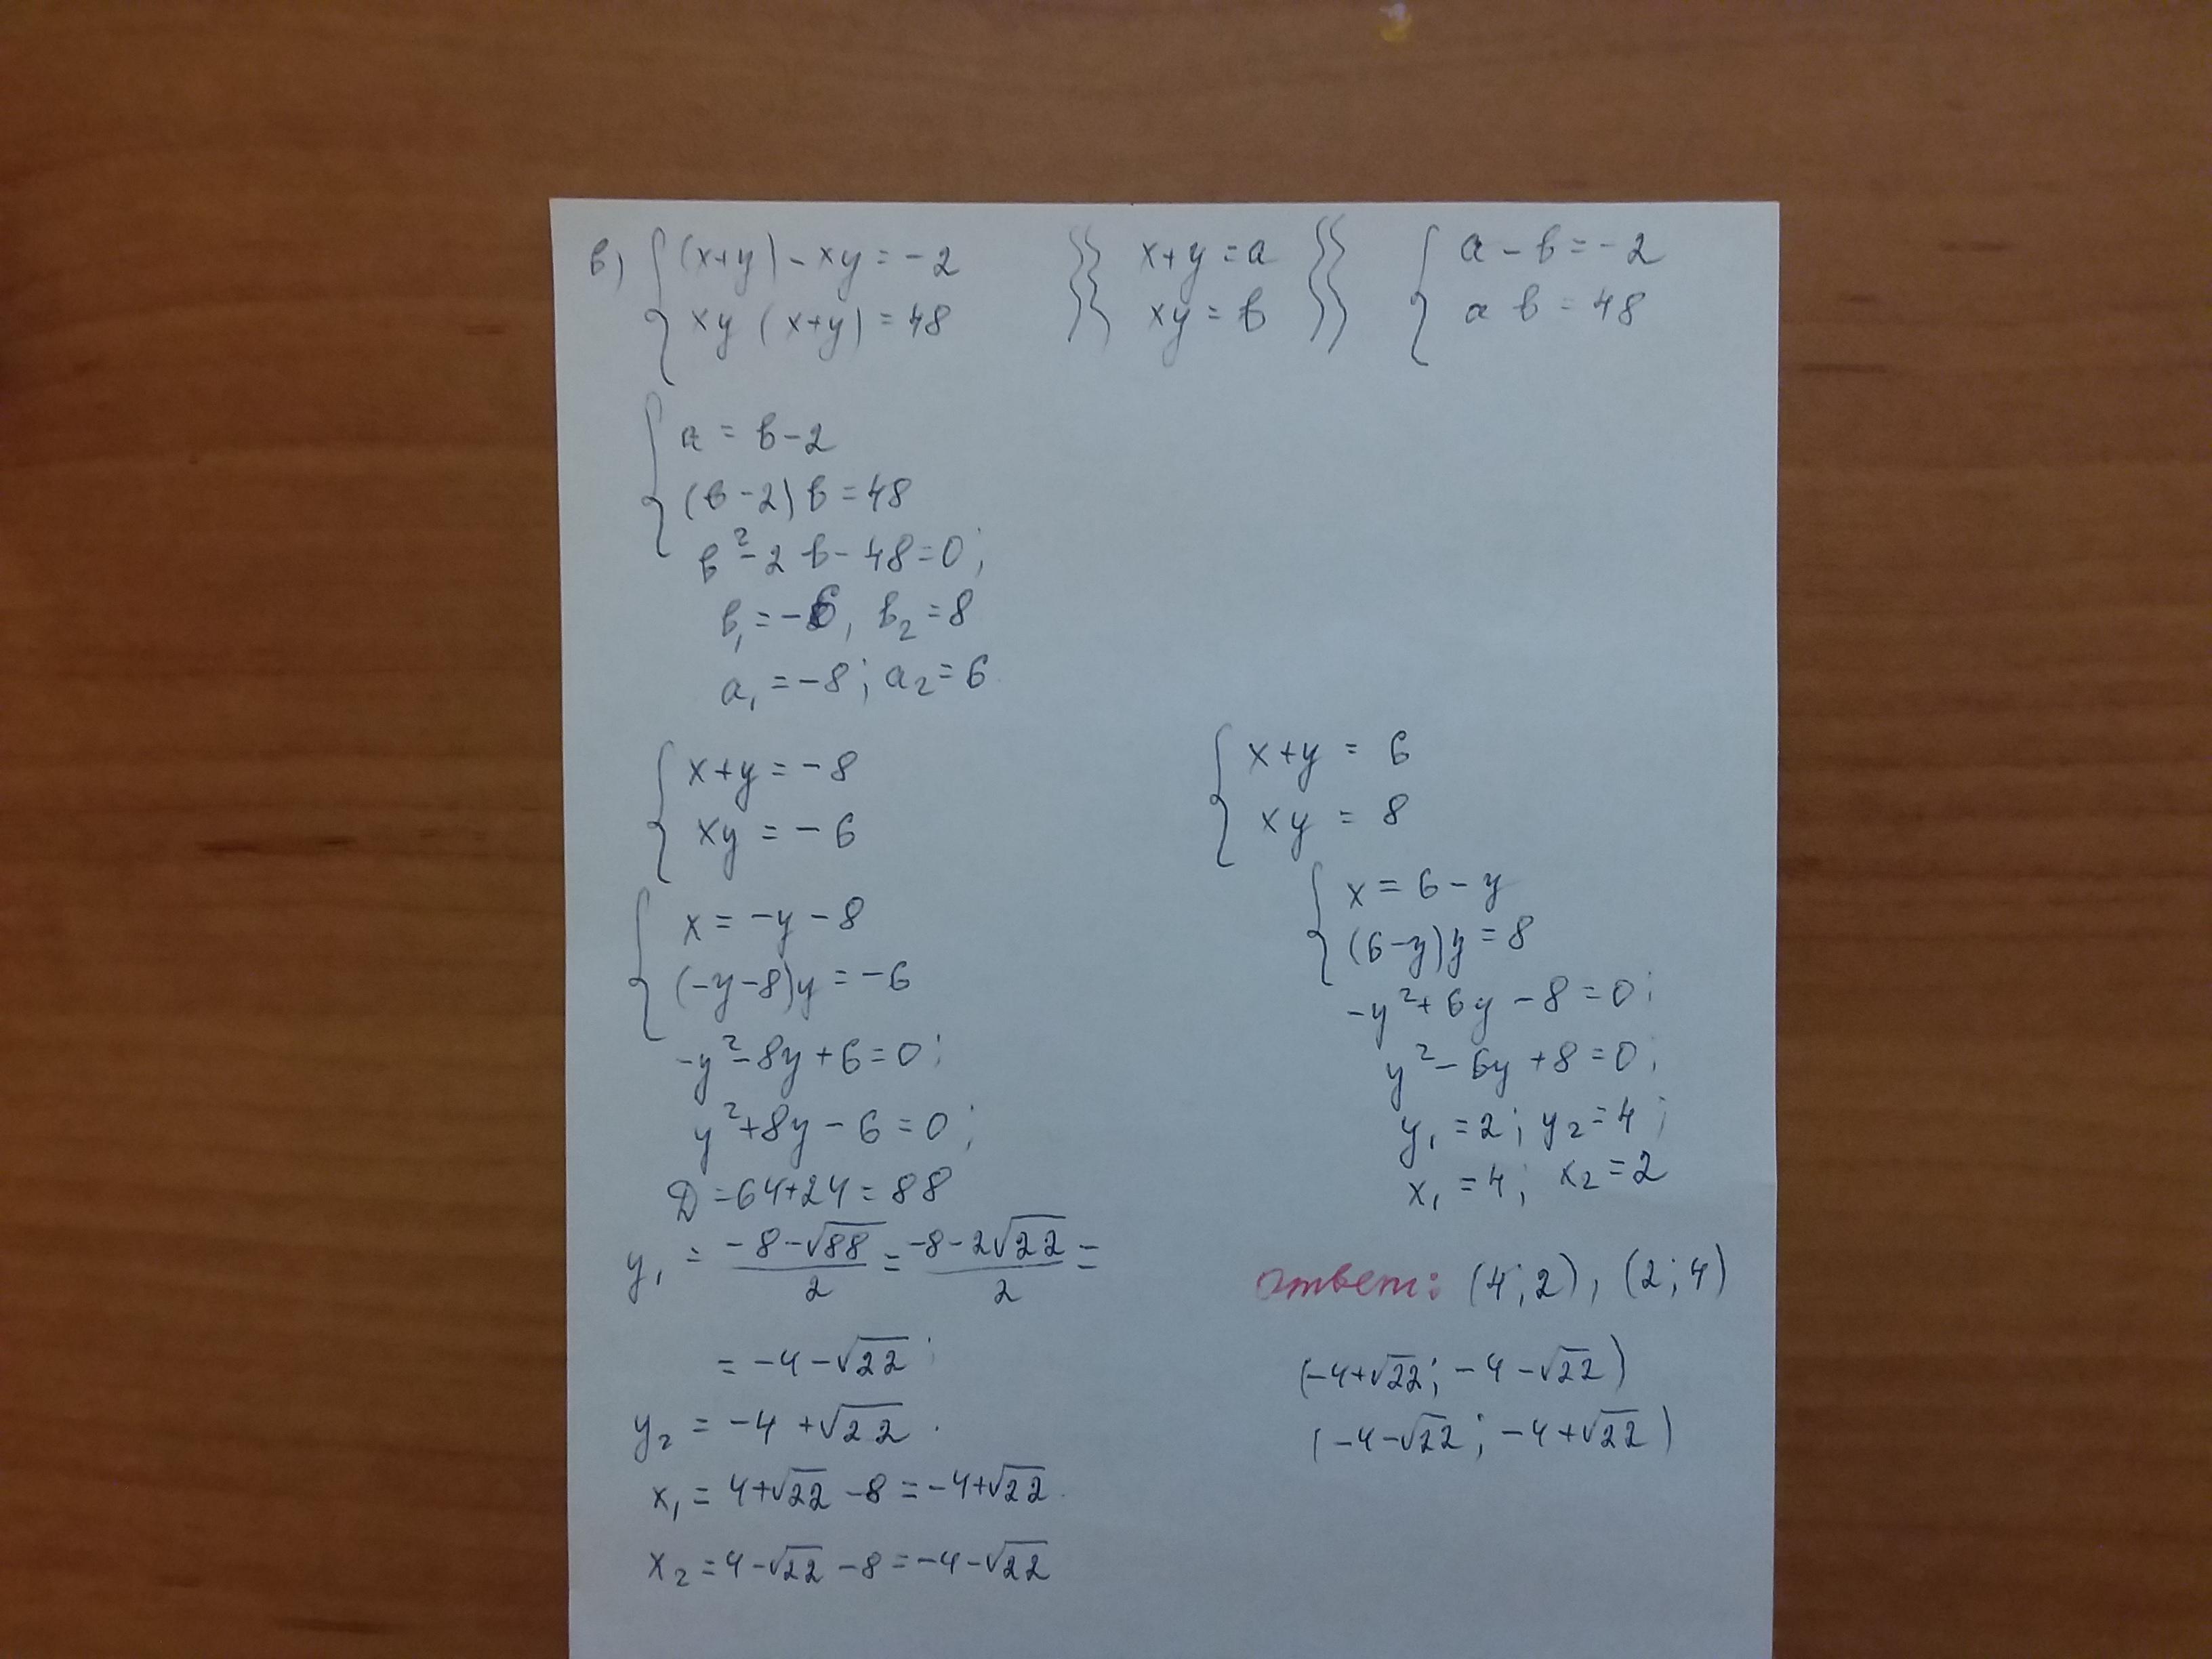 в) { (x+y) - xy = -2 }} x+y = a }} { a - в = -2
xy (x+y) = 48 xy = в a в = 48
{ a = в-2
(в-2) в = 48
в² - 2в - 48 = 0;
в₁ = -6, в₂ = 8
a₁ = -8; a₂ = 6
{ x+y = -8
xy = -6
{ x = -y - 8
(-y-8)y = -6
-y² - 8y + 6 = 0;
y² + 8y - 6 = 0;
D = 64+24 = 88
y₁ = (-8-√88)/2 = (-8-2√22)/2 =
= -4-√22;
y₂ = -4 + √22.
x₁ = 4+√22 - 8 = -4+√22.
x₂ = 4-√22 - 8 = -4-√22
{ x+y = 6
xy = 8
{ x = 6 - y
(6-y)y = 8
-y² + 6y - 8 = 0;
y² - 6y + 8 = 0;
y₁ = 2; y₂ = 4;
x₁ = 4; x₂ = 2
ответ: (4;2), (2;4)
(-4+√22; -4-√22)
(-4-√22; -4+√22)